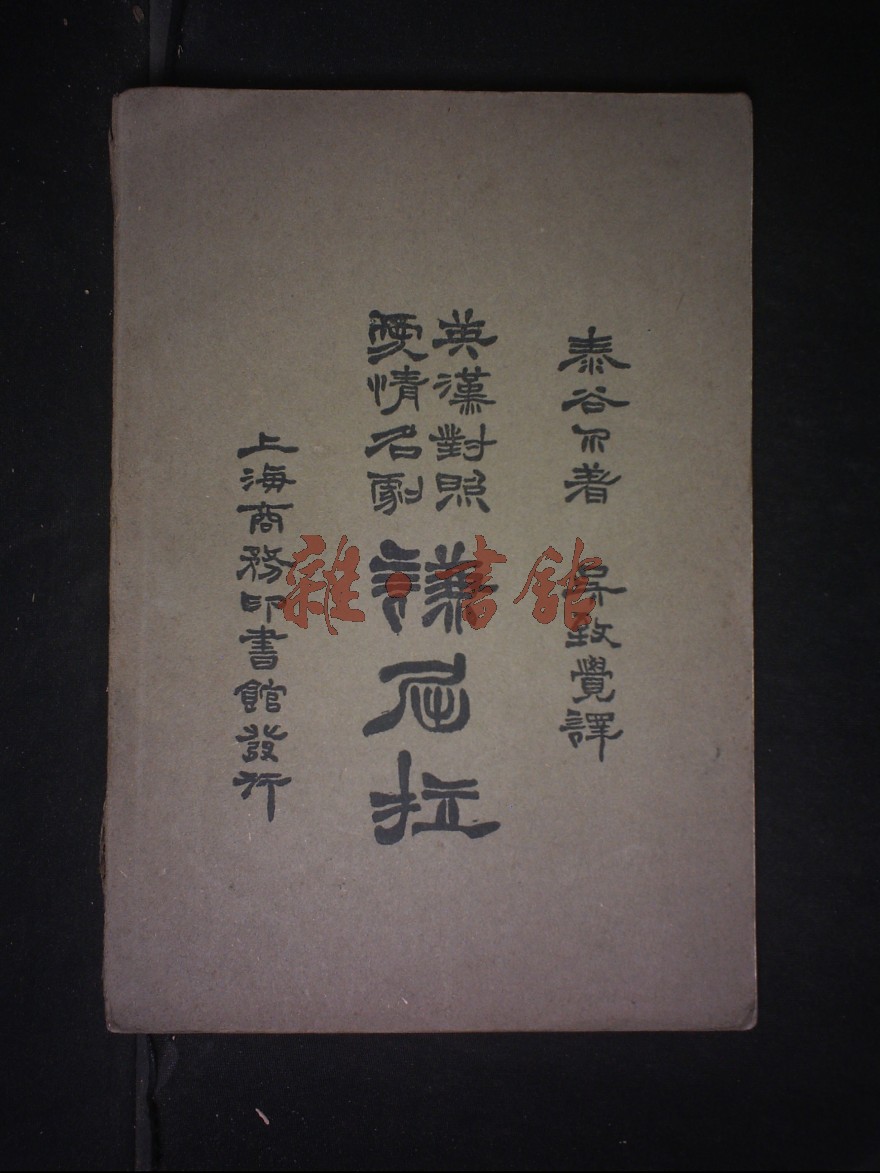 泰谷尔著　吳致覺譯
英漢對照
愛情名劇
謙屈拉
上海商務印書館發行
雜·書館